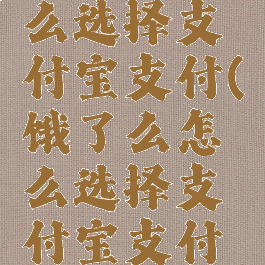 么选择支
付宝支付(
饿了么怎
么选择支
付宝支付